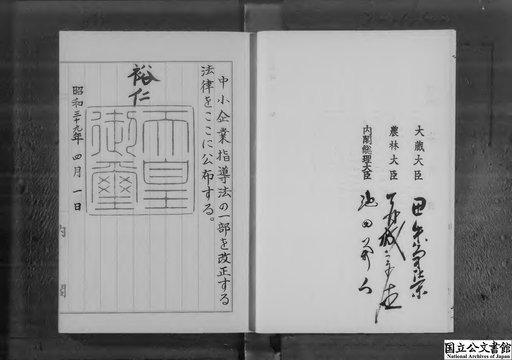 中小企業指導法の一部を改正する
法律をここに公布する。
裕仁
天皇
御璽
昭和三十九年四月一日
内閣
内閣総理大臣 池田勇人
農林大臣
大蔵大臣 田中角榮
国立公文書館
National Archives of Japan